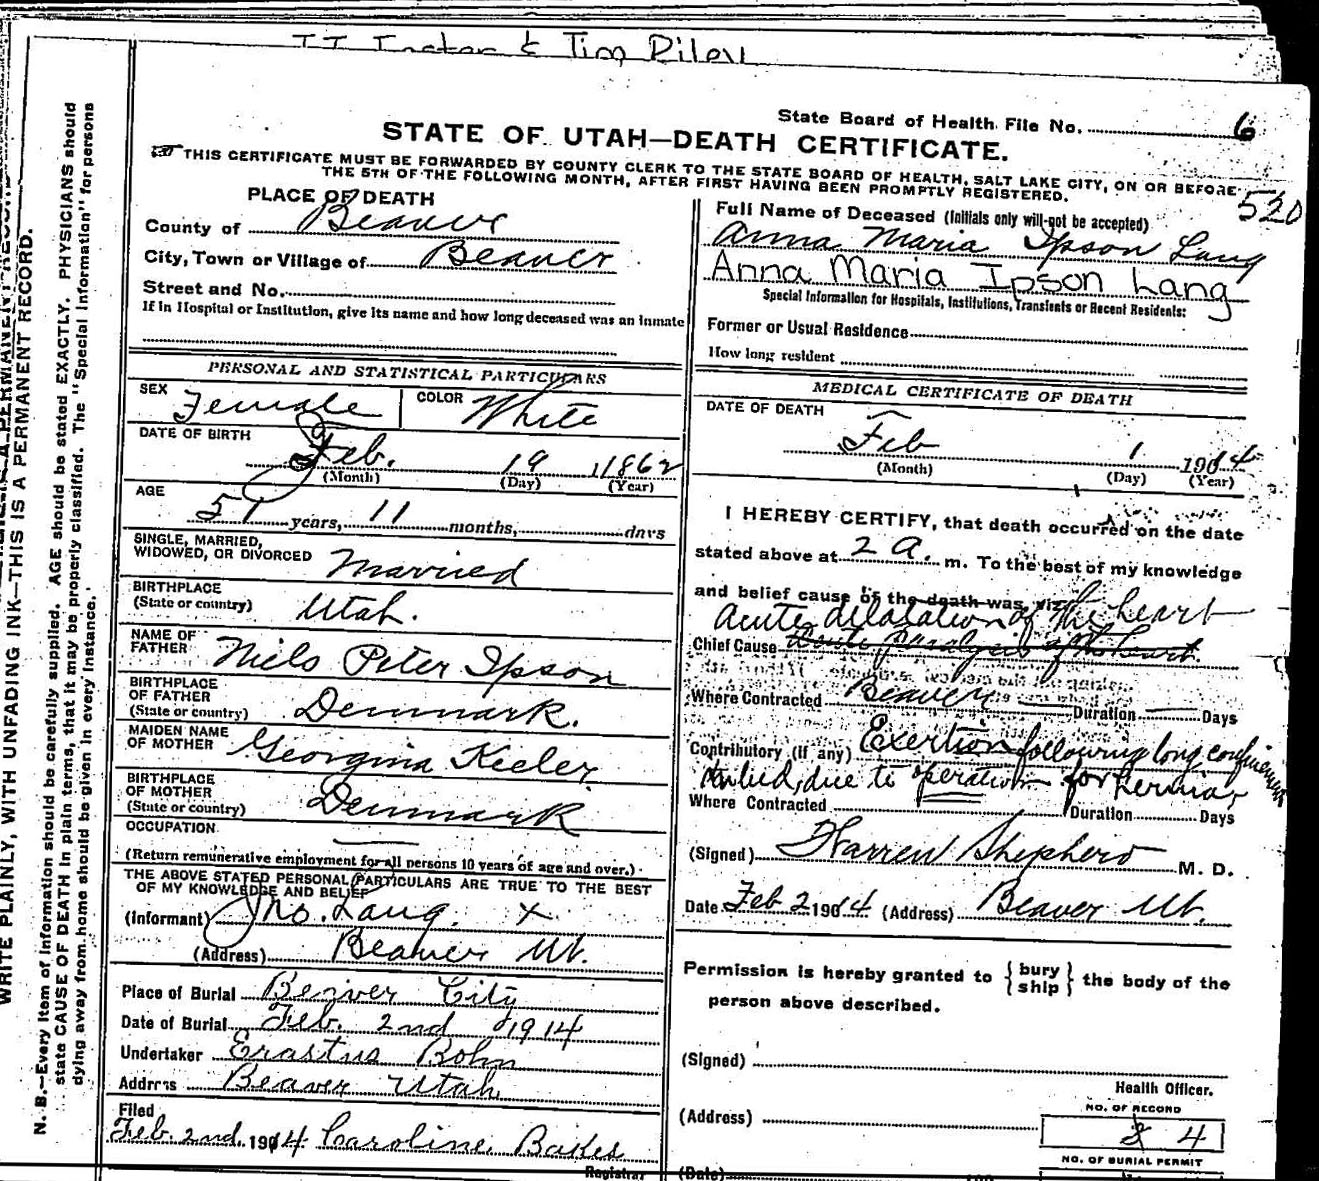 Tim Riley
State Board of Health File No. 6
STATE OF UTAH—DEATH CERTIFICATE.
THIS CERTIFICATE MUST BE FORWARDED BY COUNTY CLERK TO THE STATE BOARD OF HEALTH, SALT LAKE CITY, ON OR BEFORE
THE 5TH OF THE FOLLOWING MONTH, AFTER FIRST HAVING BEEN PROMPTLY REGISTERED.
520
PLACE OF DEATH
County of Beaver
City, Town or Village of Beaver
Street and No.
If in Hospital or Institution, give its name and how long deceased was an inmate
PERSONAL AND STATISTICAL PARTICULARS
SEX Female COLOR White
DATE OF BIRTH
Feb. 19 1862
(Month) (Day) (Year)
AGE
51 years, 11 months, days
SINGLE, MARRIED,
WIDOWED, OR DIVORCED Married
BIRTHPLACE
(State or country) Utah.
NAME OF
FATHER Niels Peter Ipson
BIRTHPLACE
OF FATHER
(State or country) Denmark.
MAIDEN NAME
OF MOTHER Georgina Keeler
BIRTHPLACE
OF MOTHER
(State or country) Denmark
OCCUPATION
(Return remunerative employment for all persons 10 years of age and over.)
THE ABOVE STATED PERSONAL PARTICULARS ARE TRUE TO THE BEST
OF MY KNOWLEDGE AND BELIEF
(Informant) Jno. Lang. X
(Address) Beaver Ut.
Place of Burial Beaver City
Date of Burial Feb. 2nd 1914
Undertaker Erastus Bohn
Address Beaver Utah
Filed
Feb. 2nd. 1914 Caroline Bakes
Registrar
Full Name of Deceased (Initials only will not be accepted)
Anna Maria Ipson Lang
Anna Maria Ipson Lang
Special Information for Hospitals, Institutions, Transients or Recent Residents:
Former or Usual Residence
How long resident
MEDICAL CERTIFICATE OF DEATH
DATE OF DEATH
Feb 1 1914
(Month) (Day) (Year)
I HEREBY CERTIFY, that death occurred on the date
stated above at 2 a. m. To the best of my knowledge
and belief cause of the death was, viz:
Acute dilatation of the heart
Chief Cause Acute paralysis of the heart
Where Contracted Beaver Duration Days
Contributory (if any) Exertion following long confinement
in bed, due to operation for hernia,
Where Contracted Duration Days
(Signed) Warren Shepherd M. D.
Date Feb 2 1914 (Address) Beaver Ut.
Permission is hereby granted to { bury ship } the body of the
person above described.
(Signed)
Health Officer.
(Address)
NO. OF RECORD
4
NO. OF BURIAL PERMIT
(Date)
WRITE PLAINLY, WITH UNFADING INK—THIS IS A PERMANENT RECORD.
N. B.—Every item of information should be carefully supplied. AGE should be stated EXACTLY. PHYSICIANS should
state CAUSE OF DEATH in plain terms, that it may be properly classified. The "Special Information" for persons
dying away from home should be given in every instance.